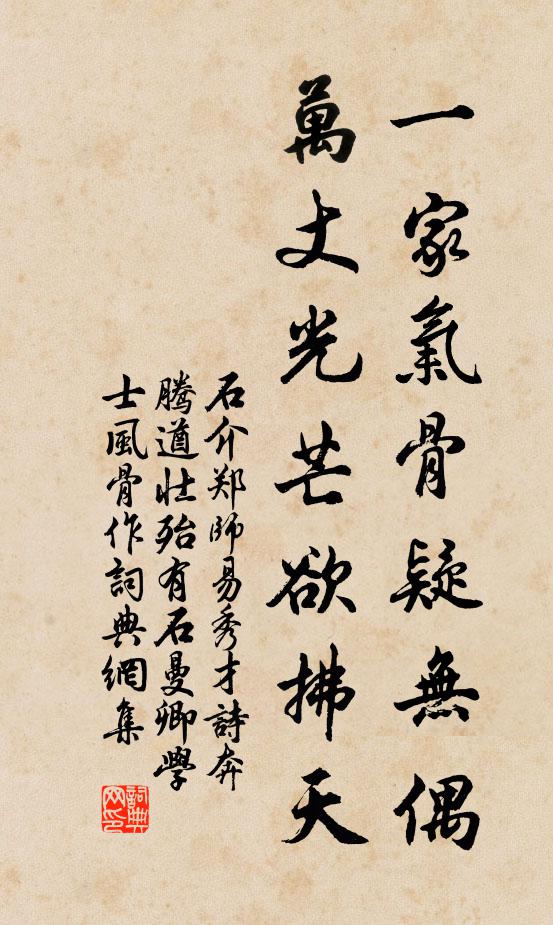 一家氣骨疑無偶
萬丈光芒欲拂天
石介郑師易秀才詩奔
騰遒壯殆有石曼卿學
士風骨作詞典網集
詞典
网印